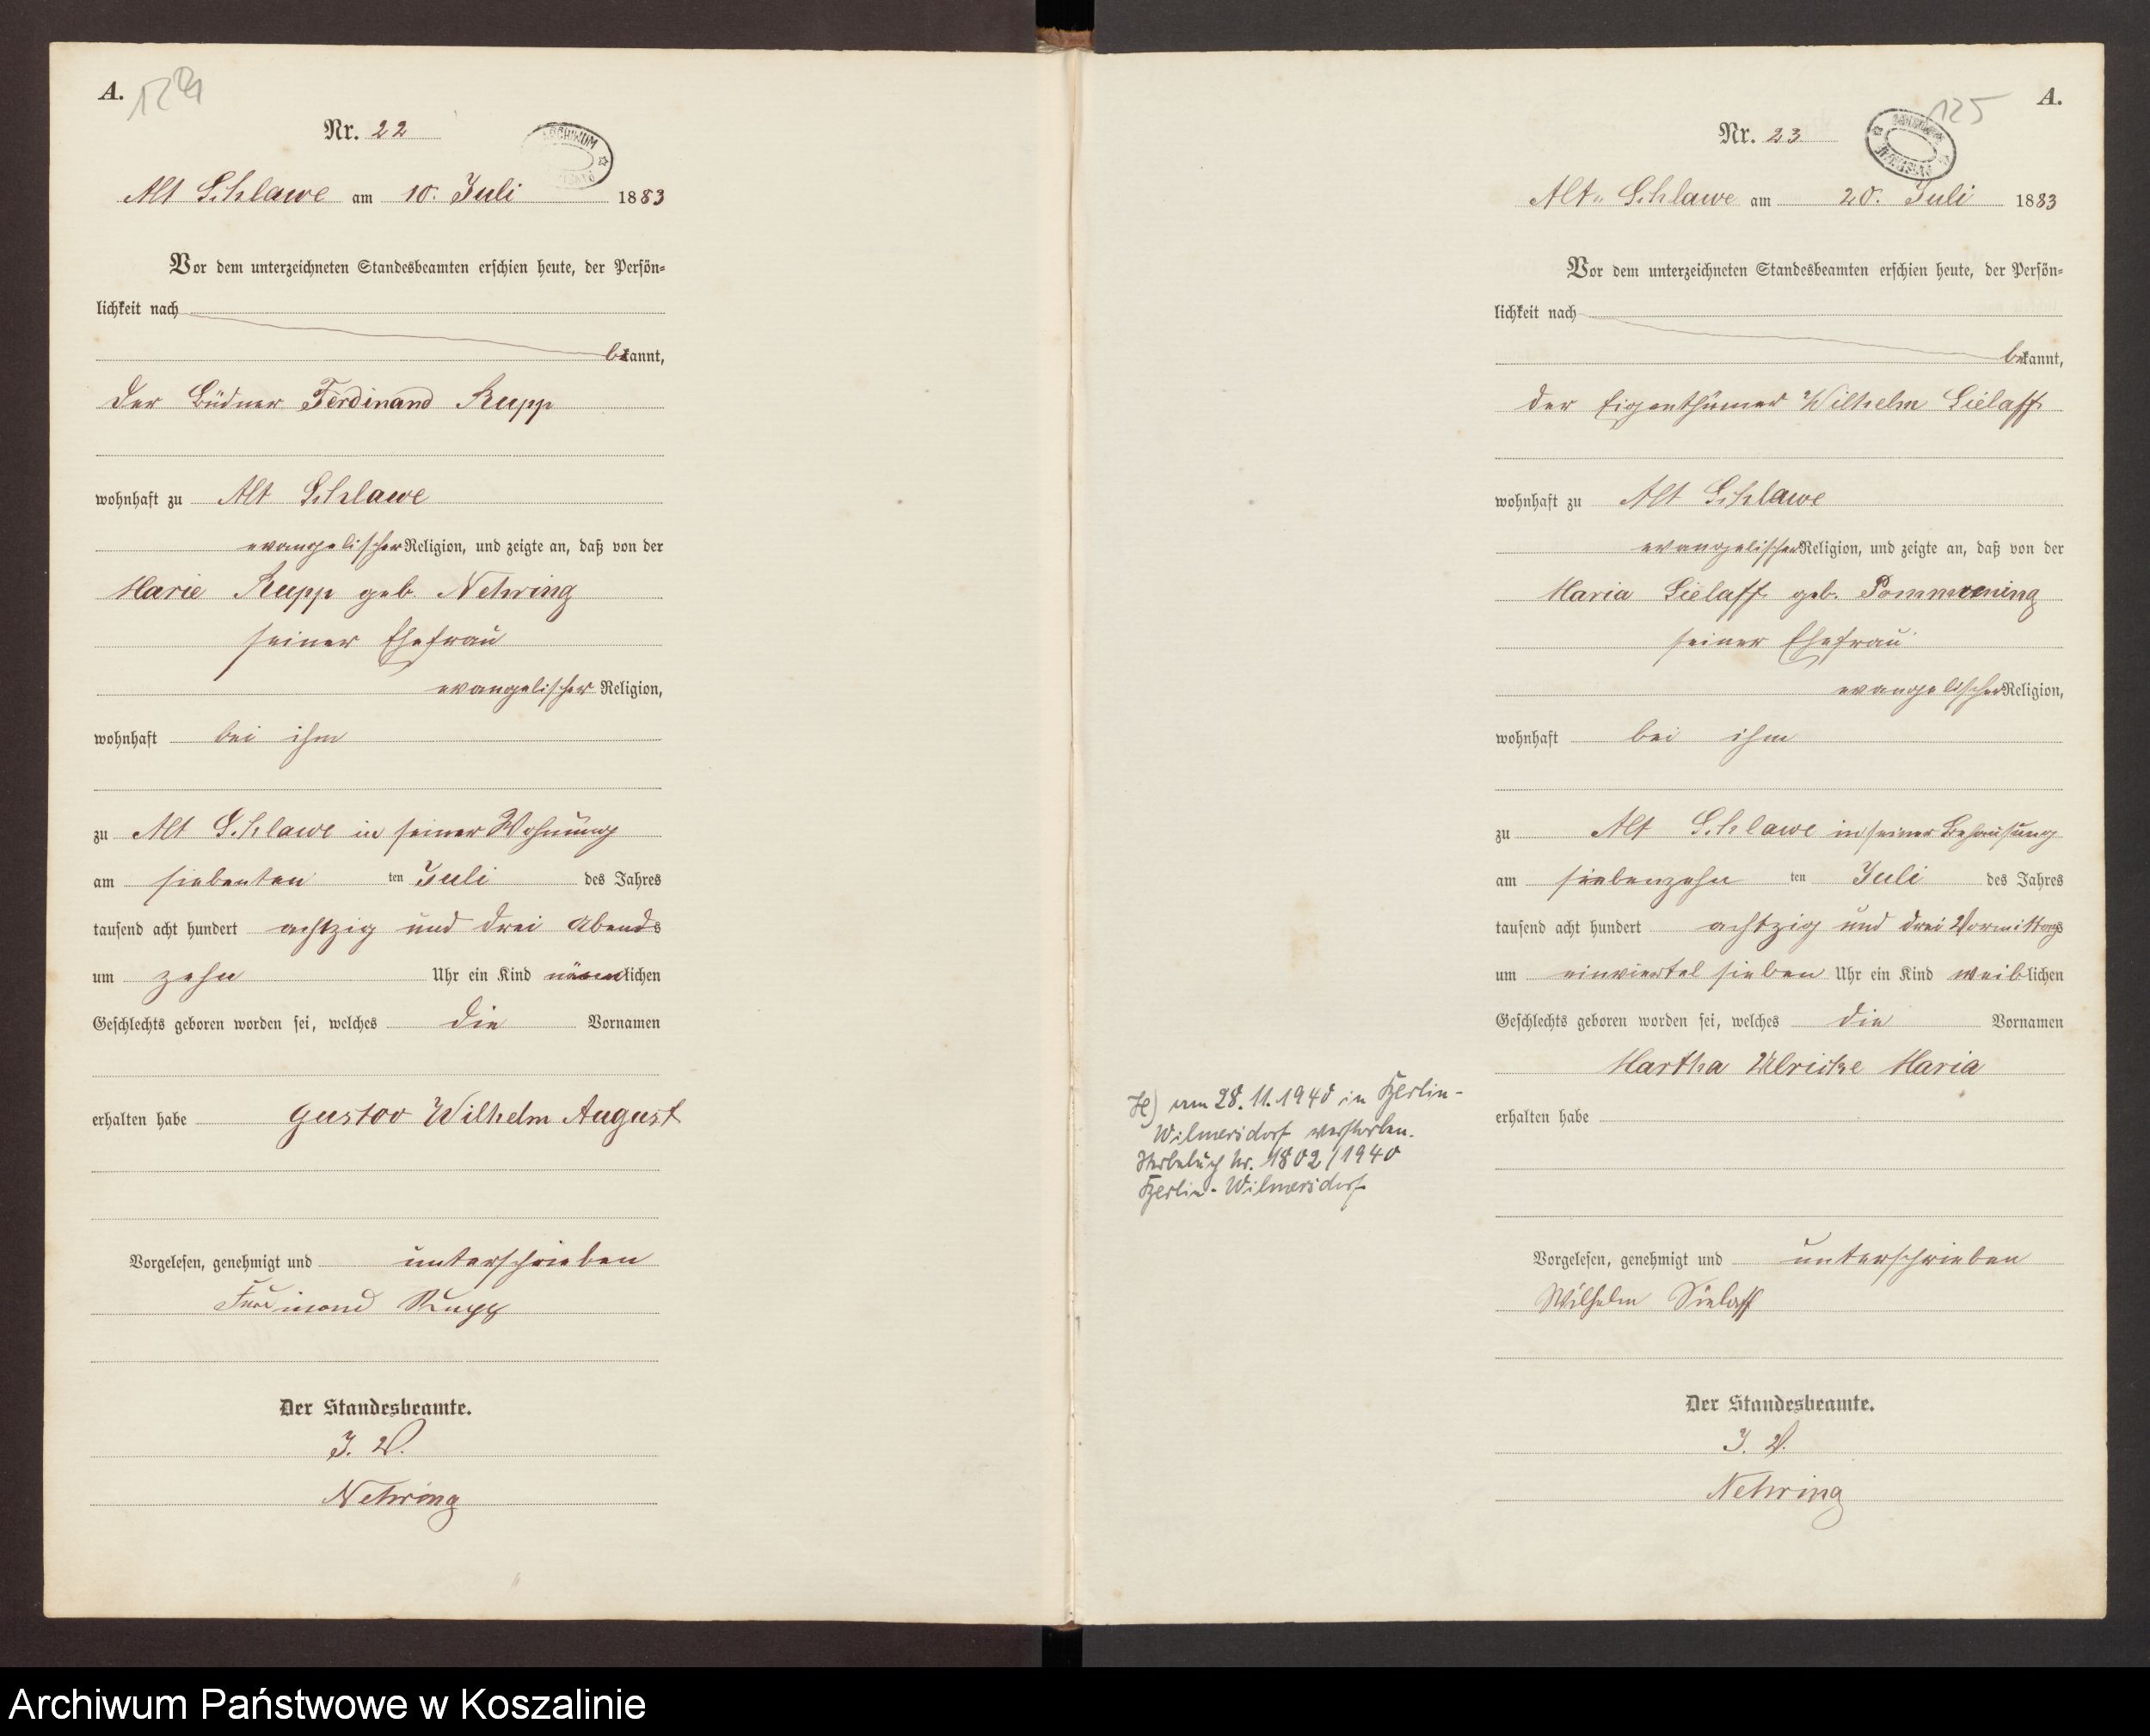 A. 124
Nr. 22
Alt Schlawe am 10. Juli 1883
Vor dem unterzeichneten Standesbeamten erschien heute, der Persön-
lichkeit nach
bekannt,
der Büdner Ferdinand Rupp
wohnhaft zu Alt Schlawe
evangelischer Religion, und zeigte an, daß von der
Marie Rupp geb. Nehring
seiner Ehefrau
evangelischer Religion,
wohnhaft bei ihm
zu Alt Schlawe in seiner Wohnung
am siebenten ten Juli des Jahres
tausend acht hundert achtzig und drei Abends
um zehn Uhr ein Kind männlichen
Geschlechts geboren worden sei, welches die Vornamen
erhalten habe Gustav Wilhelm August
Vorgelesen, genehmigt und unterschrieben
Ferdinand Rupp
Der Standesbeamte.
J. V.
Nehring
125 A.
Nr. 23
Alt-Schlawe am 20. Juli 1883
Vor dem unterzeichneten Standesbeamten erschien heute, der Persön-
lichkeit nach
bekannt,
der Eigenthümer Wilhelm Sielaff
wohnhaft zu Alt Schlawe
evangelischer Religion, und zeigte an, daß von der
Maria Sielaff geb. Pommerening
seiner Ehefrau
evangelischer Religion,
wohnhaft bei ihm
zu Alt Schlawe in seiner Behausung
am siebenzehn ten Juli des Jahres
tausend acht hundert achtzig und drei Vormittags
um einviertel sieben Uhr ein Kind weiblichen
Geschlechts geboren worden sei, welches die Vornamen
Martha Ulricke Maria
erhalten habe
Vorgelesen, genehmigt und unterschrieben
Wilhelm Sielaff
Der Standesbeamte.
J. V.
Nehring
am 28.11.1940 in Berlin-
Wilmersdorf verstorben.
Sterbebuch Nr. 1802/1940
Berlin-Wilmersdorf
Archiwum Państwowe w Koszalinie